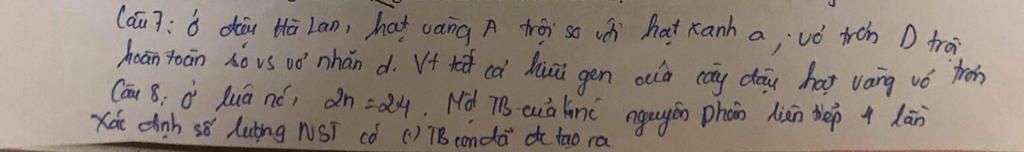 Câu 7: ở đậu Hà Lan, hạt vàng A trội so với hạt xanh a, vỏ trơn D trội
hoàn toàn so vs vỏ nhăn d. Vt tất cả kiểu gen của cây đậu hạt vàng vỏ trơn
Câu 8: ở lúa nc, 2n = 24. Một TB của nguyên phân liên tiếp 4 lần
Xác định số lượng NST có TB con đã đc tạo ra